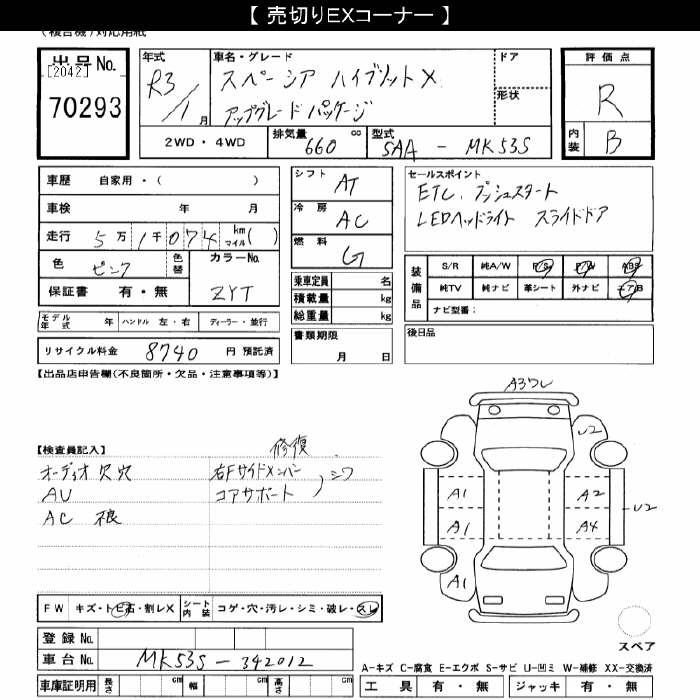 【 売切りEXコーナー 】
(複合機)対応用紙
出品No.
[2042]
70293
年式
R3/1月
車名・グレード
スペーシア ハイブリットX
アップグレードパッケージ
ドア
形状
評価点
R
内装
B
2WD・4WD
排気量
660 cc
型式
5AA - MK53S
車歴 自家用・( )
車検 年 月
走行 5万1千074 km マイル( )
色 ピンク 色替 カラーNo.
保証書 有・無 ZYT
モデル年式 年 ハンドル 左・右 ディーラー・並行
リサイクル料金 8740 円 預託済
シフト AT
冷房 AC
燃料 G
乗車定員 名
積載量 kg
総重量 kg
書類期限
月 日
セールスポイント
ETC、プッシュスタート
LEDヘッドライト スライドドア
装備品
S/R 純A/W P/S P/W ABS
純TV 純ナビ 革シート 外ナビ エアB
ナビ型番:
後日品
【出品店申告欄(不良箇所・欠品・注意事項等)】
【検査員記入】
修復
オーディオ欠穴
右Fサイドメンバー
コアサポート
シワ
AU
AC 不良
A3ワレ
U2
A1
A2
U2
A1
A4
A1
FW キズ・トビ石・割レX シート内装 コゲ・穴・汚レ・シミ・破レ・スレ
登録No.
車台No. MK53S-342012
車庫証明用 長さ cm 幅 cm 高さ cm
スペア
A-キズ C-腐食 E-エクボ S-サビ U-凹ミ W-補修 XX-交換済
工具 有・無 ジャッキ 有・無